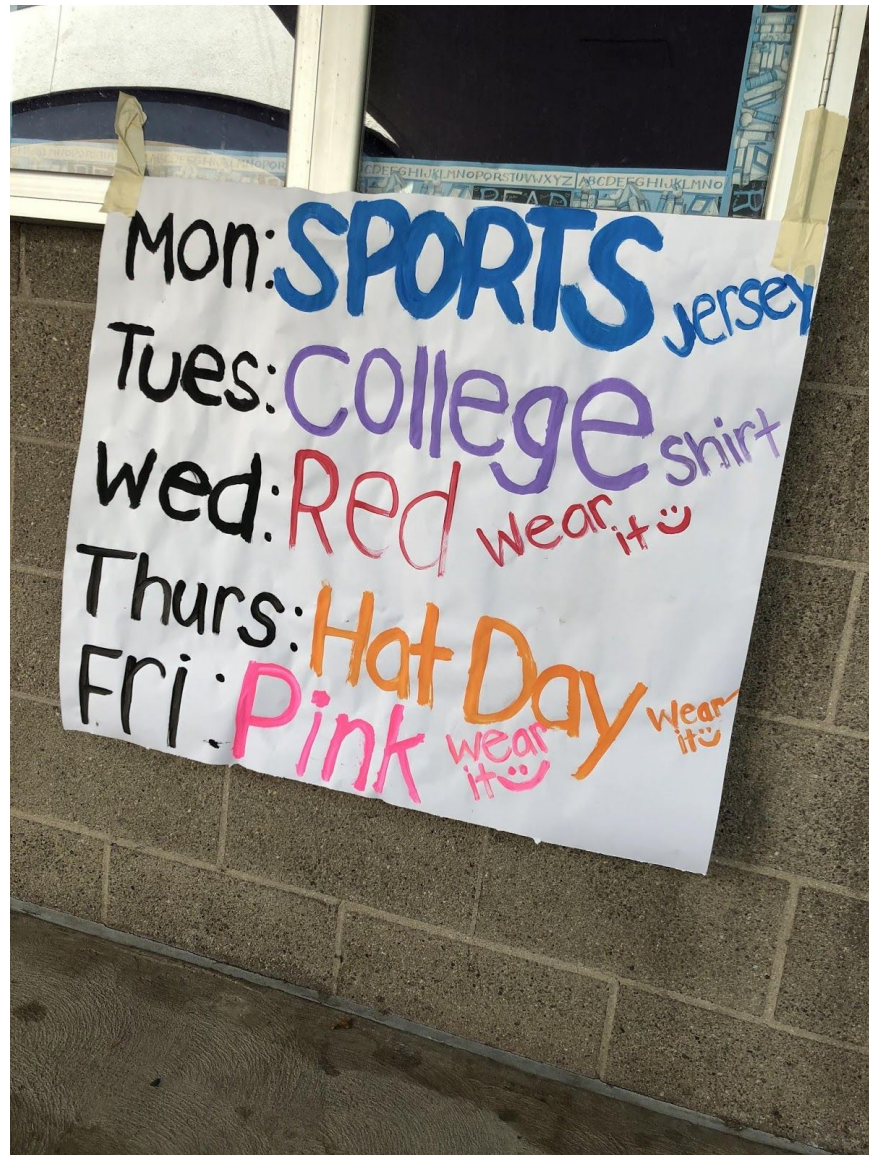 CDEFGHIJKLMNOPQRSTUVWXYZ ABCDEFGHIJKLMNO
READ
Mon: SPORTS Jersey
Tues: College shirt
Wed: Red Wear it
Thurs: Hat Day Wear it
Fri: Pink wear it